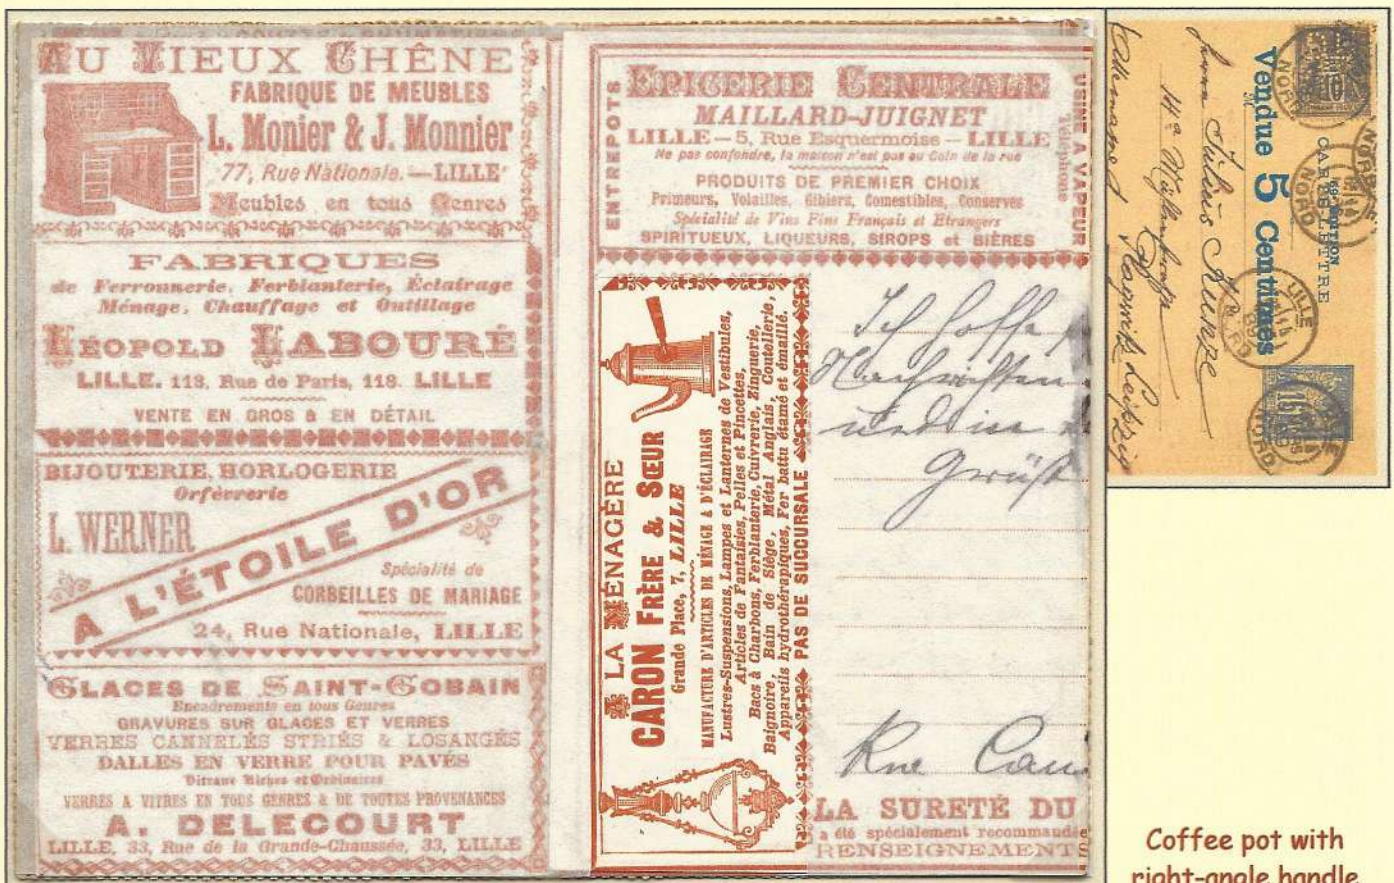 AU VIEUX CHÊNE
FABRIQUE DE MEUBLES
L. Monier & J. Monnier
77, Rue Nationale. — LILLE
Meubles en tous Genres
FABRIQUES
de Ferronnerie, Ferblanterie, Éclairage
Ménage, Chauffage et Outillage
LÉOPOLD LABOURÉ
LILLE. 118, Rue de Paris, 118. LILLE
VENTE EN GROS & EN DÉTAIL
BIJOUTERIE, HORLOGERIE
Orfèvrerie
L. WERNER
A L'ÉTOILE D'OR
Spécialité de
CORBEILLES DE MARIAGE
24, Rue Nationale, LILLE
GLACES DE SAINT-GOBAIN
Encadrements en tous Genres
GRAVURES SUR GLACES ET VERRES
VERRES CANNELÉS STRIÉS & LOSANGÉS
DALLES EN VERRE POUR PAVÉS
Vitraux Riches et Ordinaires
VERRES A VITRES EN TOUS GENRES & DE TOUTES PROVENANCES
A. DELECOURT
LILLE, 33, Rue de la Grande-Chaussée, 33, LILLE
ENTREPOTS
EPICERIE CENTRALE
MAILLARD-JUIGNET
LILLE — 5, Rue Esquermoise — LILLE
Ne pas confondre, la maison n'est pas au Coin de la rue
PRODUITS DE PREMIER CHOIX
Primeurs, Volailles, Gibiers, Comestibles, Conserves
Spécialité de Vins Fins Français et Etrangers
SPIRITUEUX, LIQUEURS, SIROPS et BIÈRES
USINE A VAPEUR
Téléphone
A LA MÉNAGÈRE
CARON FRÈRE & SŒUR
Grande Place, 7, LILLE
MANUFACTURE D'ARTICLES DE MÉNAGE & D'ÉCLAIRAGE
Lustres-Suspensions, Lampes et Lanternes de Vestibules,
Articles de Fantaisies, Pelles et Pincettes,
Bacs à Charbons, Ferblanterie, Cuivrerie, Zinguerie,
Baignoire, Bain de Siège, Métal Anglais, Coutellerie,
Appareils hydrothérapiques, Fer battu étamé et émaillé.
PAS DE SUCCURSALE
Ich hoffe
Nachrichten
und in
Grüßt
Rue Cau
LA SURETÉ DU
a été spécialement recommandée
RENSEIGNEMENTS
CARTE LETTRE
69e EDITION
Vendue 5 Centimes
Julius Kunze
Allemagne
Leipzig
10
15
LILLE
NORD
Coffee pot with
right-angle handle